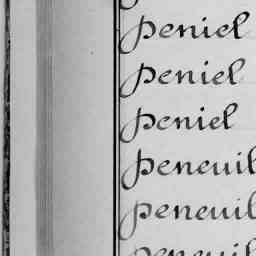 Peniel
Peniel
Peniel
Peneuil
Peneuil
Peneuil